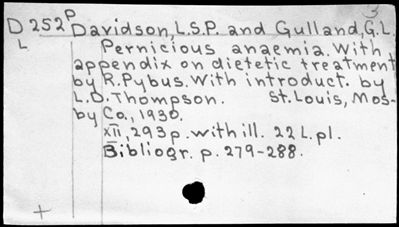 3
D 252P Davidson, L.S.P. and Gulland, G.L.
L Pernicious anaemia. With
appendix on dietetic treatment
by R. Pybus. With introduct. by
L.D. Thompson. St. Louis, Mos-
by Co., 1930.
XII, 293 p. with ill. 22 L. pl.
Bibliogr. p. 279-288.
+